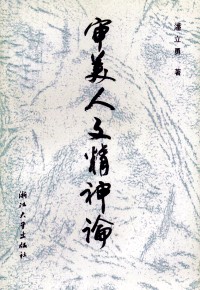 潘立勇 著
审美人文精神论
浙江大学出版社